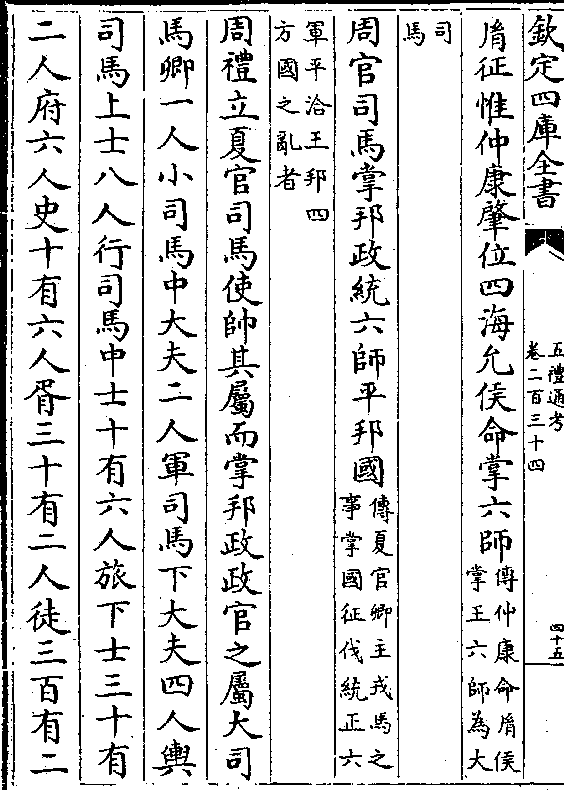 欽定四庫全書
五禮通考
卷二百三十四
四十五
胤征惟仲康肇位四海允侯命掌六師
傳仲康命胤侯
掌王六師為大
司
馬
周官司馬掌邦政統六師平邦國
傳夏官卿主戎馬之
事掌國征伐統正六
軍平治王邦四
方國之亂者
周禮立夏官司馬使帥其屬而掌邦政政官之屬大司
馬卿一人小司馬中大夫二人軍司馬下大夫四人輿
司馬上士八人行司馬中士十有六人旅下士三十有
二人府六人史十有六人胥三十有二人徒三百有二